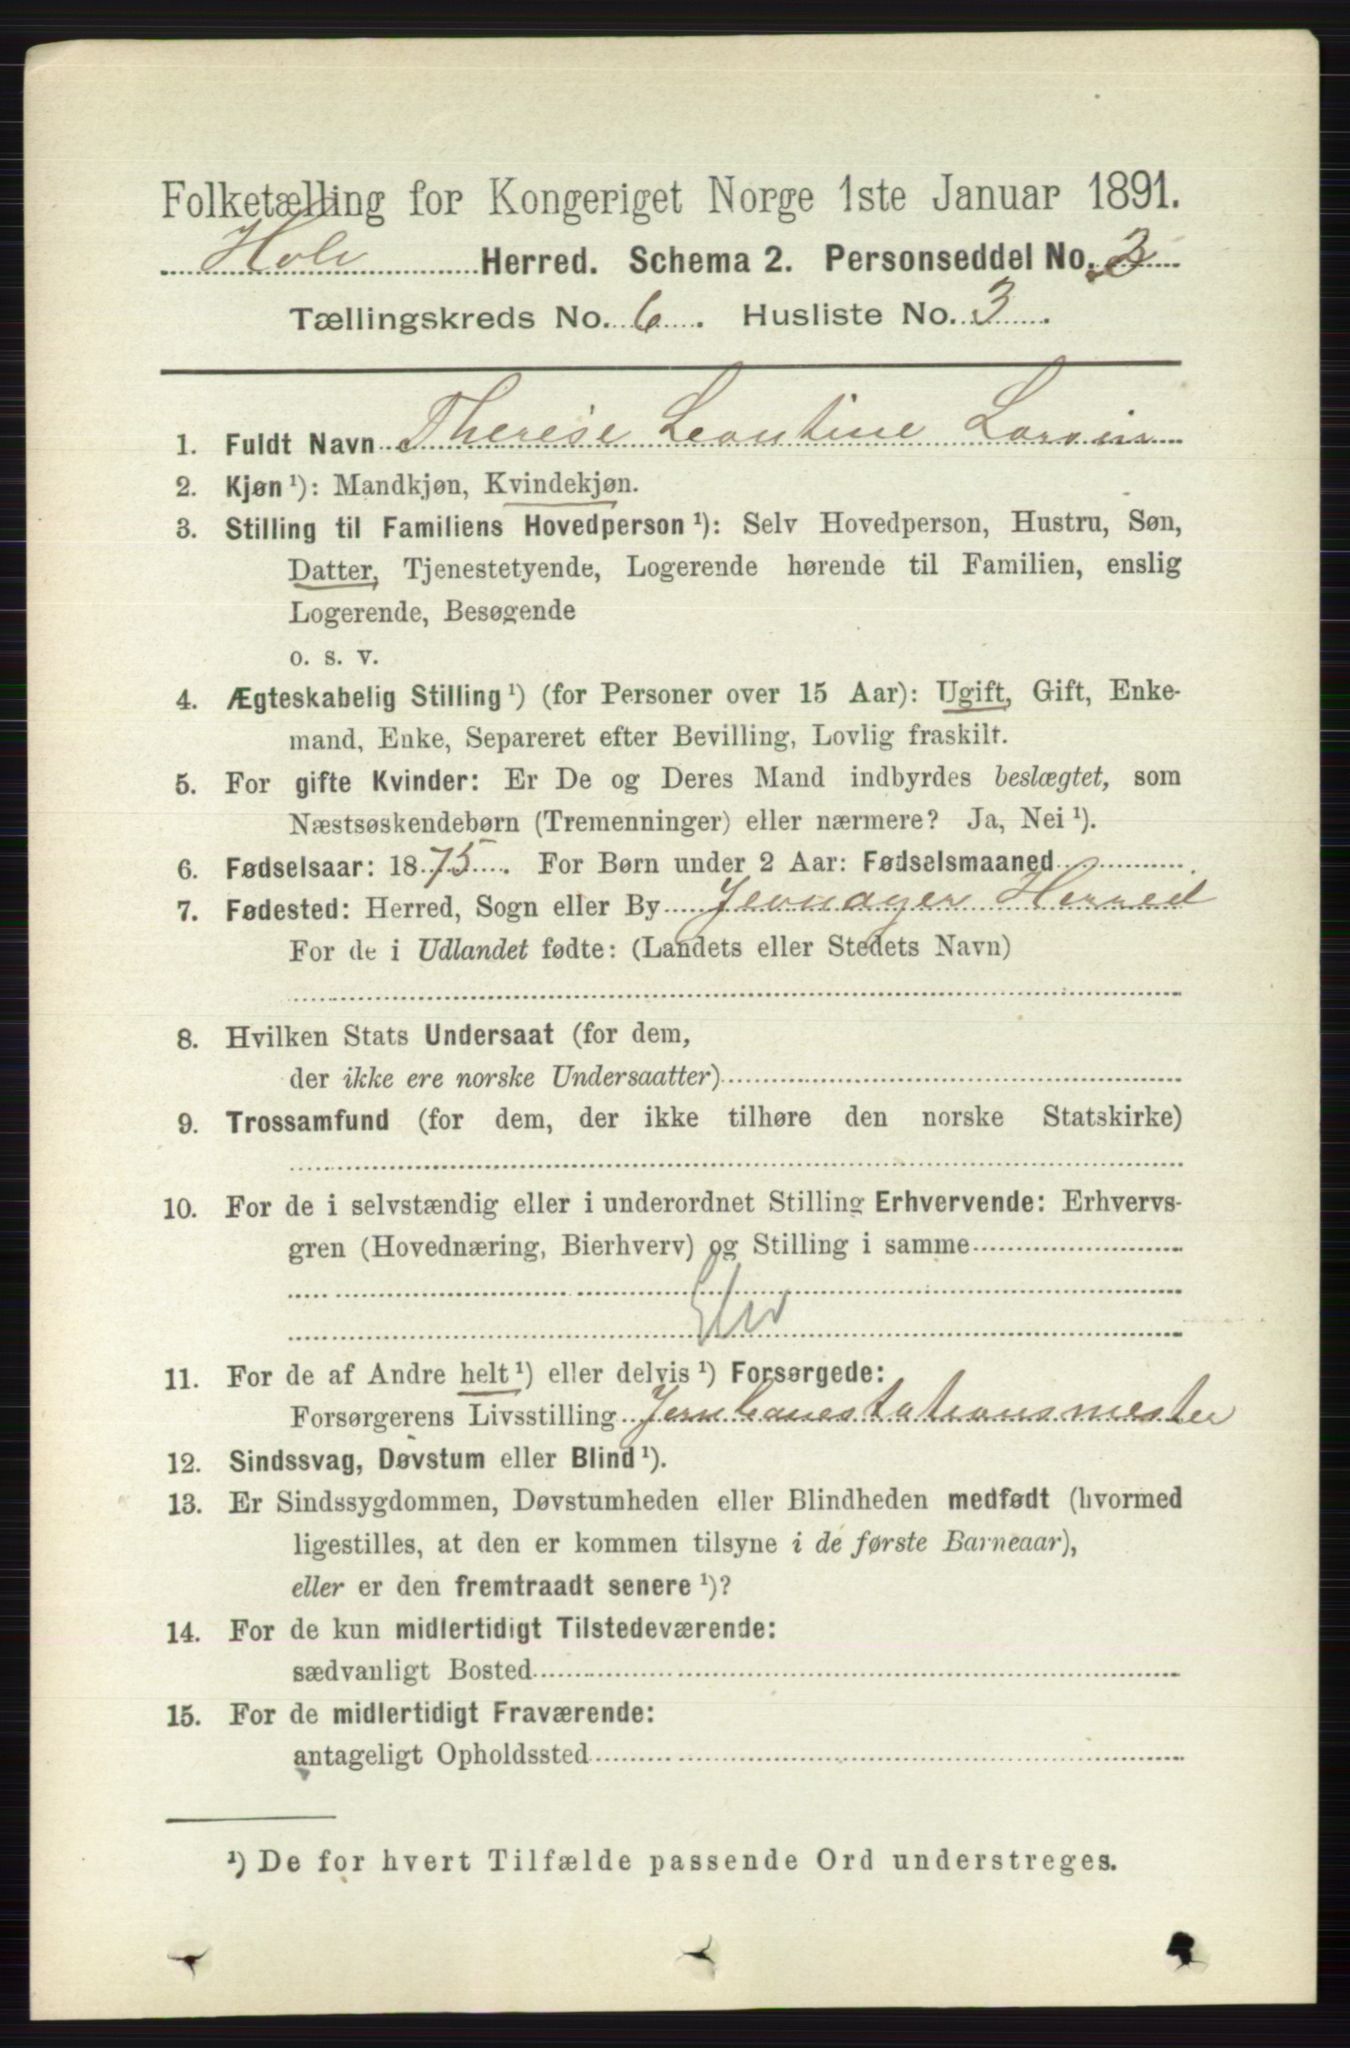 Folketælling for Kongeriget Norge 1ste Januar 1891.
Hole Herred. Schema 2. Personseddel No. 3
Tællingskreds No. 6. Husliste No. 3.
1. Fuldt Navn Therese Leontine Larsen
2. Kjøn ¹): Mandkjøn, Kvindekjøn.
3. Stilling til Familiens Hovedperson ¹): Selv Hovedperson, Hustru, Søn,
Datter, Tjenestetyende, Logerende hørende til Familien, enslig
Logerende, Besøgende
o. s. v.
4. Ægteskabelig Stilling ¹) (for Personer over 15 Aar): Ugift, Gift, Enke-
mand, Enke, Separeret efter Bevilling, Lovlig fraskilt.
5. For gifte Kvinder: Er De og Deres Mand indbyrdes beslægtet, som
Næstsøskendebørn (Tremenninger) eller nærmere? Ja, Nei ¹).
6. Fødselsaar: 1875. For Børn under 2 Aar: Fødselsmaaned
7. Fødested: Herred, Sogn eller By Jevnager Herred
For de i Udlandet fødte: (Landets eller Stedets Navn)
8. Hvilken Stats Undersaat (for dem,
der ikke ere norske Undersaatter)
9. Trossamfund (for dem, der ikke tilhøre den norske Statskirke)
10. For de i selvstændig eller i underordnet Stilling Erhvervende: Erhvervs-
gren (Hovednæring, Bierhverv) og Stilling i samme
11. For de af Andre helt ¹) eller delvis ¹) Forsørgede:
Forsørgerens Livsstilling Jernbanestationsmester
12. Sindssvag, Døvstum eller Blind ¹).
13. Er Sindssygdommen, Døvstumheden eller Blindheden medfødt (hvormed
ligestilles, at den er kommen tilsyne i de første Barneaar),
eller er den fremtraadt senere ¹)?
14. For de kun midlertidigt Tilstedeværende:
sædvanligt Bosted
15. For de midlertidigt Fraværende:
antageligt Opholdssted
¹) De for hvert Tilfælde passende Ord understreges.